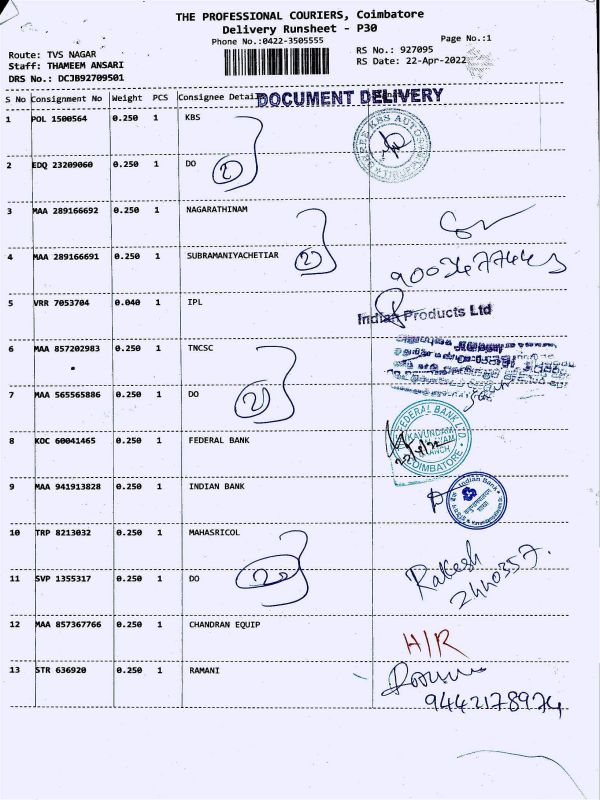 THE PROFESSIONAL COURIERS, Coimbatore
Delivery Runsheet - P30
Phone No.:0422-3505555
Page No.:1
Route: TVS NAGAR
Staff: THAMEEM ANSARI
DRS No.: DCJB92709501
RS No.: 927095
RS Date: 22-Apr-2022
S No Consignment No Weight PCS Consignee Detail
DOCUMENT DELIVERY
1 POL 1500564 0.250 1 KBS
SREE KBS AUTOS TIRUPPUR
2 EDQ 23209060 0.250 1 DO
2
3 MAA 289166692 0.250 1 NAGARATHINAM
4 MAA 289166691 0.250 1 SUBRAMANIYACHETIAR
2
5 VRR 7053704 0.040 1 IPL
Indian Products Ltd
6 MAA 857202983 0.250 1 TNCSC
7 MAA 565565886 0.250 1 DO
2
8 KOC 60041465 0.250 1 FEDERAL BANK
FEDERAL BANK LTD
COIMBATORE
9 MAA 941913828 0.250 1 INDIAN BANK
Indian Bank
10 TRP 8213032 0.250 1 MAHASRICOL
Rakesh
2440357.
11 SVP 1355317 0.250 1 DO
12 MAA 857367766 0.250 1 CHANDRAN EQUIP
H/R
13 STR 636920 0.250 1 RAMANI
9442178974